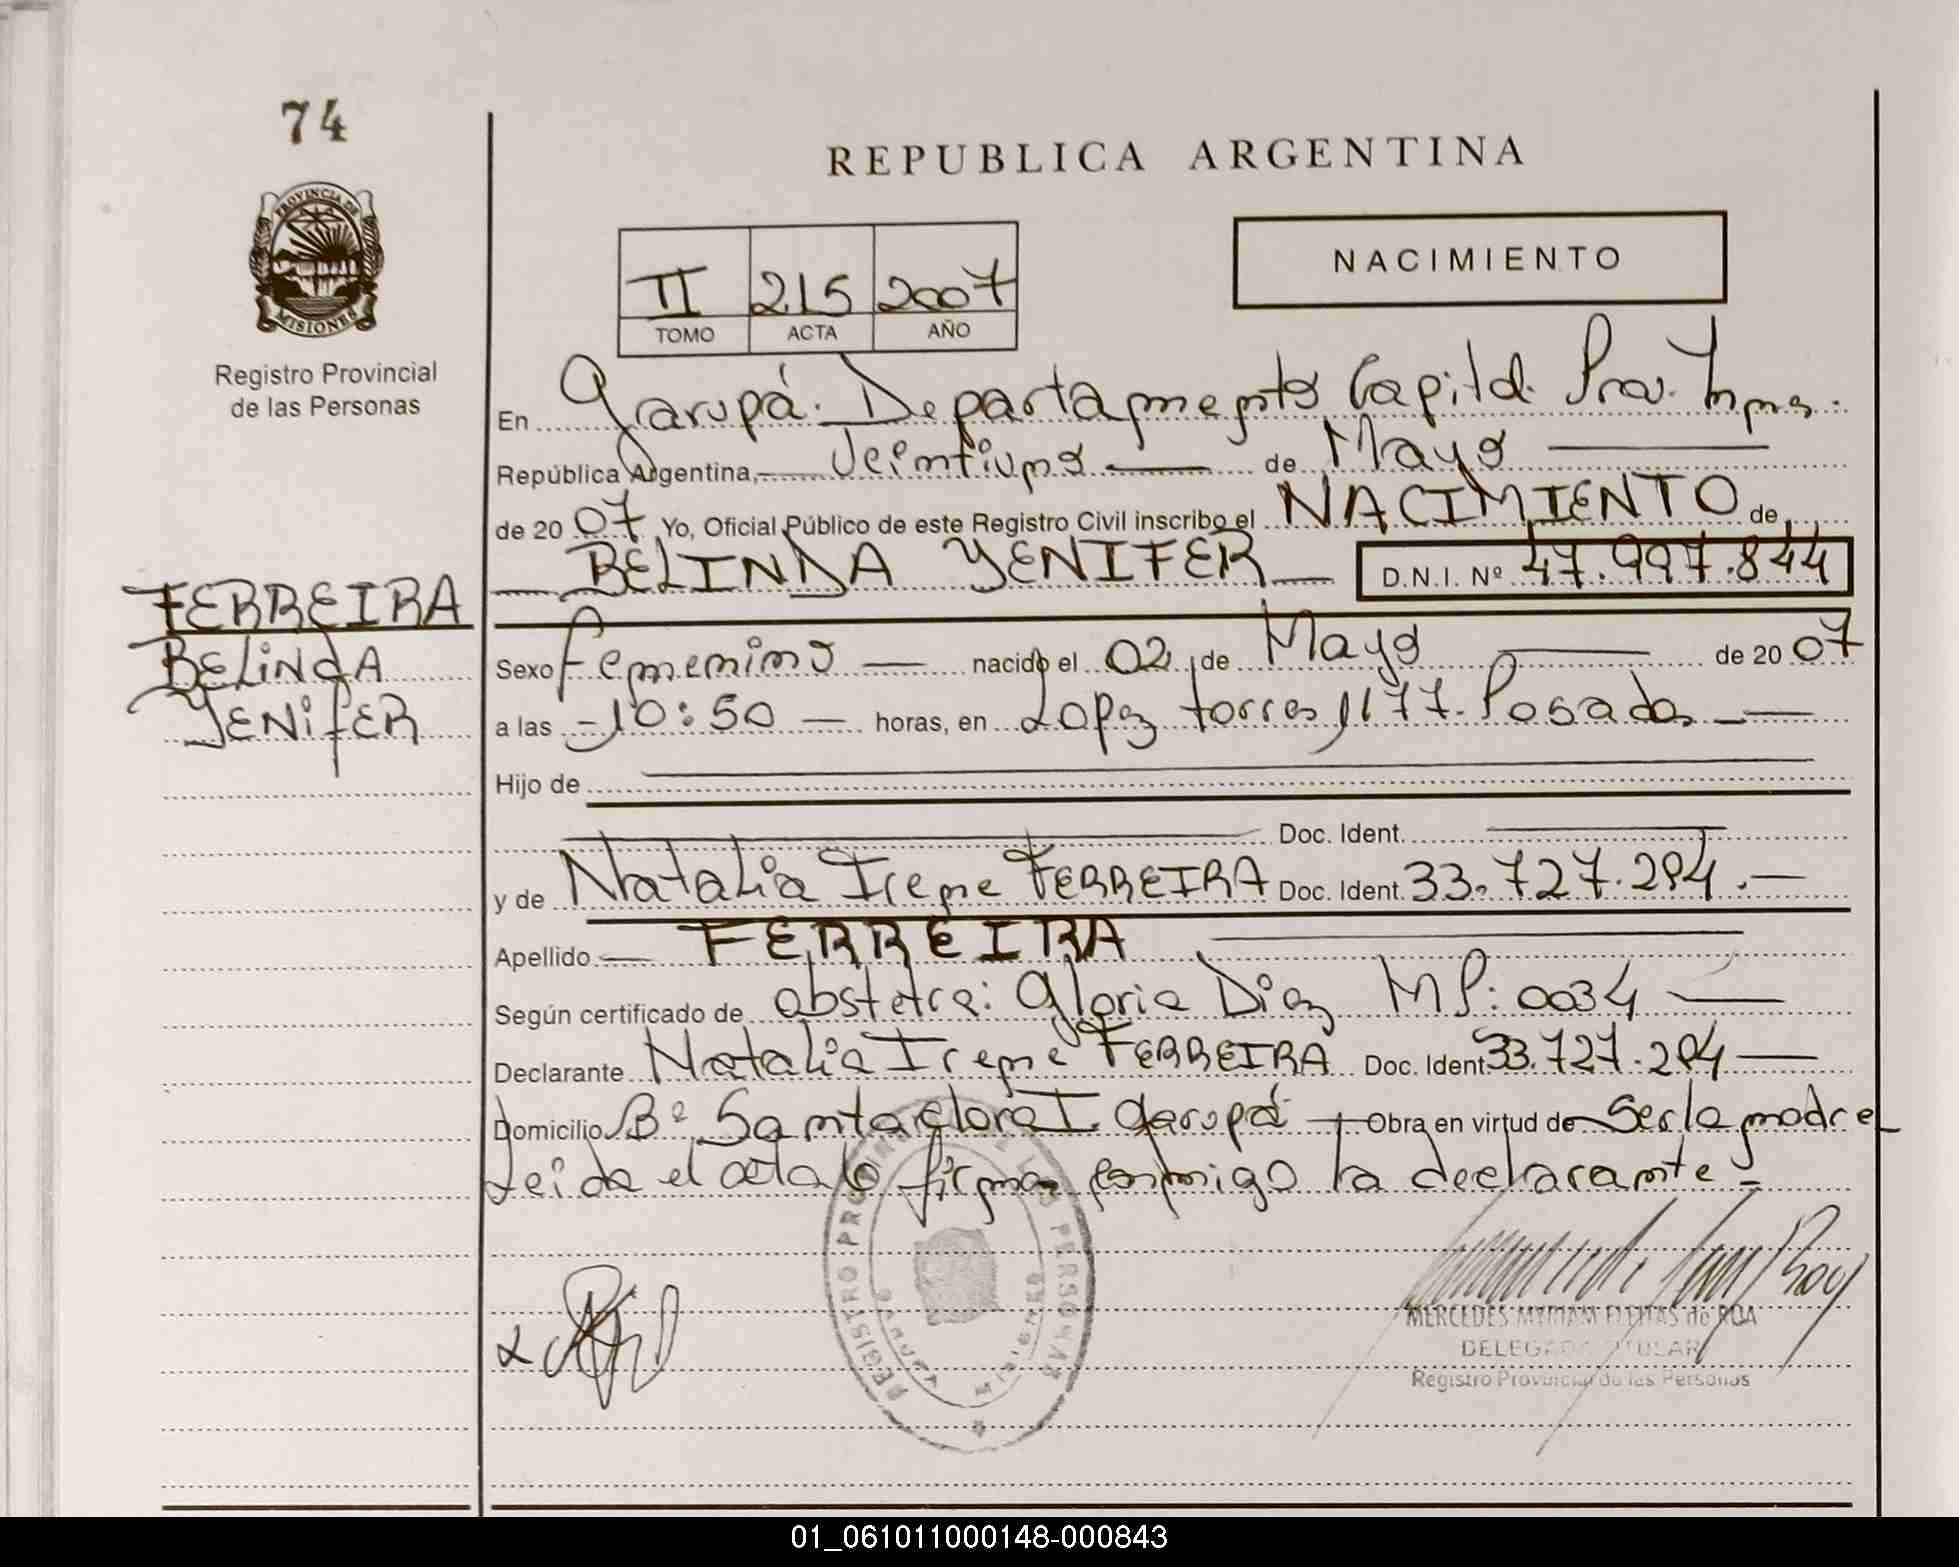 74
PROVINCIA DE
MISIONES
Registro Provincial
de las Personas
REPUBLICA ARGENTINA
NACIMIENTO
II 215 2007
TOMO ACTA AÑO
En Garupá. Departamento Capital. Prov. Mnes.
República Argentina, Veintiuno de Mayo
de 2007 Yo, Oficial Público de este Registro Civil inscribo el NACIMIENTO de
BELINDA YENIFER D.N.I. Nº 47.997.844
FERREIRA
BELINDA
YENIFER
Sexo Femenino nacido el 02 de Mayo de 2007
a las 10:50 horas, en Lopez torres 1177. Posadas
Hijo de
Doc. Ident.
y de Natalia Irene FERREIRA Doc. Ident. 33.727.294.
Apellido FERREIRA
Según certificado de obstetra: Gloria Diaz MP: 0034
Declarante Natalia Irene FERREIRA Doc. Ident. 33.727.294
Domicilio Bº Santa clara I. Garupá Obra en virtud de Ser la madre
Leida el acta la firma conmigo la declarante
REGISTRO PROVINCIAL DE LAS PERSONAS
GARUPA MISIONES
MERCEDES MYRIAM FLEITAS de ROA
DELEGADA TITULAR
Registro Provincial de las Personas
01_061011000148-000843